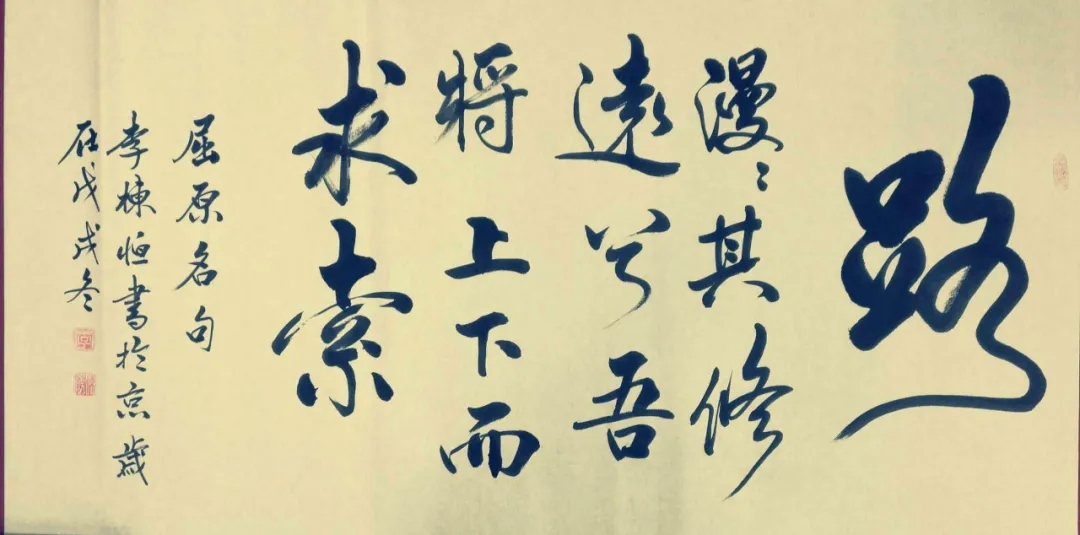 路
漫〻其修
遠兮吾
將上下而
求索
屈原名句
李棟恒書於京歲
在戊戌冬